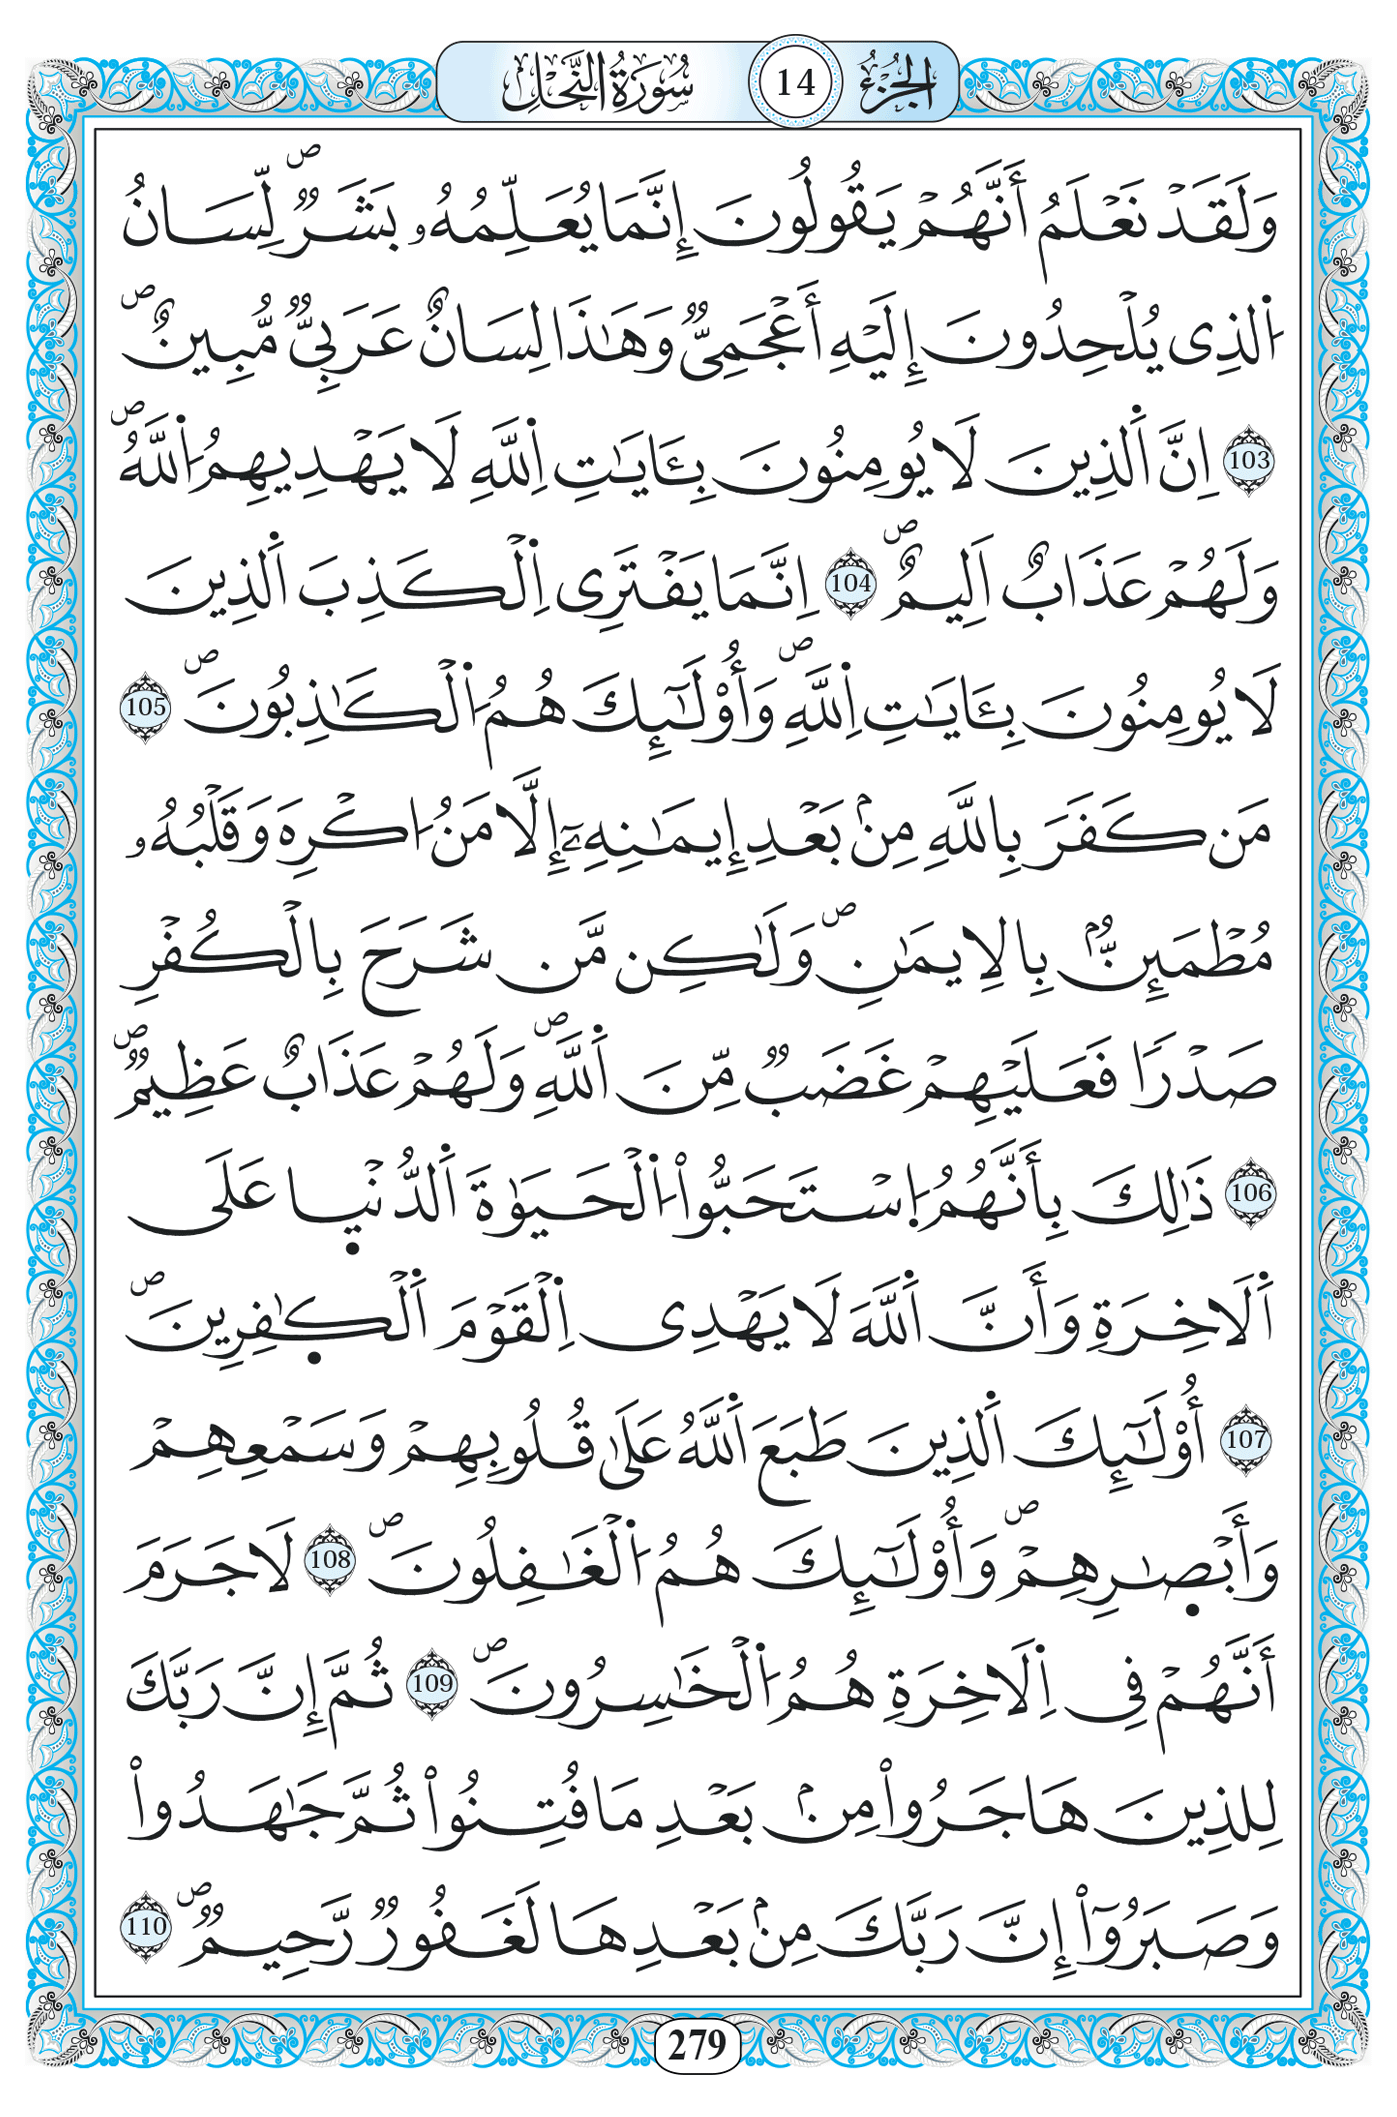 الجزء 14 سورة النحل
وَلَقَدْ نَعْلَمُ أَنَّهُمْ يَقُولُونَ إِنَّمَا يُعَلِّمُهُۥ بَشَرٌۖ لِّسَانُ
اُ۬لذِے يُلْحِدُونَ إِلَيْهِ أَعْجَمِيّٞ وَهَٰذَا لِسَانٌ عَرَبِيّٞ مُّبِينٌۖ
103 اِنَّ اَ۬لذِينَ لَا يُومِنُونَ بِـَٔايَٰتِ اِ۬للَّهِ لَا يَهْدِيهِمُ اُ۬للَّهُۖ
وَلَهُمْ عَذَابٌ اَلِيمٌۖ 104 اِنَّمَا يَفْتَرِے اِ۬لْكَذِبَ اَ۬لذِينَ
لَا يُومِنُونَ بِـَٔايَٰتِ اِ۬للَّهِۖ وَأُوْلَٰٓئِكَ هُمُ اُ۬لْكَٰذِبُونَۖ 105
مَن كَفَرَ بِاللَّهِ مِنۢ بَعْدِ إِيمَٰنِهِۦٓ إِلَّا مَنُ ا۟كْرِهَ وَقَلْبُهُۥ
مُطْمَئِنُّۢ بِالِايمَٰنِۖ وَلَٰكِن مَّن شَرَحَ بِالْكُفْرِ
صَدْرٗا فَعَلَيْهِمْ غَضَبٞ مِّنَ اَ۬للَّهِۖ وَلَهُمْ عَذَابٌ عَظِيمٞۖ
106 ذَٰلِكَ بِأَنَّهُمُ اُ۪سْتَحَبُّواْ اُ۬لْحَيَوٰةَ اَ۬لدُّنْي۪ا عَلَى
اَ۬لَاخِرَةِ وَأَنَّ اَ۬للَّهَ لَا يَهْدِے اِ۬لْقَوْمَ اَ۬لْكٰ۪فِرِينَۖ
107 أُوْلَٰٓئِكَ اَ۬لذِينَ طَبَعَ اَ۬للَّهُ عَلَىٰ قُلُوبِهِمْ وَسَمْعِهِمْ
وَأَبْصٰ۪رِهِمْۖ وَأُوْلَٰٓئِكَ هُمُ اُ۬لْغَٰفِلُونَۖ 108 لَا جَرَمَ
أَنَّهُمْ فِے اِ۬لَاخِرَةِ هُمُ اُ۬لْخَٰسِرُونَۖ 109 ثُمَّ إِنَّ رَبَّكَ
لِلذِينَ هَاجَرُواْ مِنۢ بَعْدِ مَا فُتِنُواْ ثُمَّ جَٰهَدُواْ
وَصَبَرُوٓاْ إِنَّ رَبَّكَ مِنۢ بَعْدِهَا لَغَفُورٞ رَّحِيمٞۖ 110
279